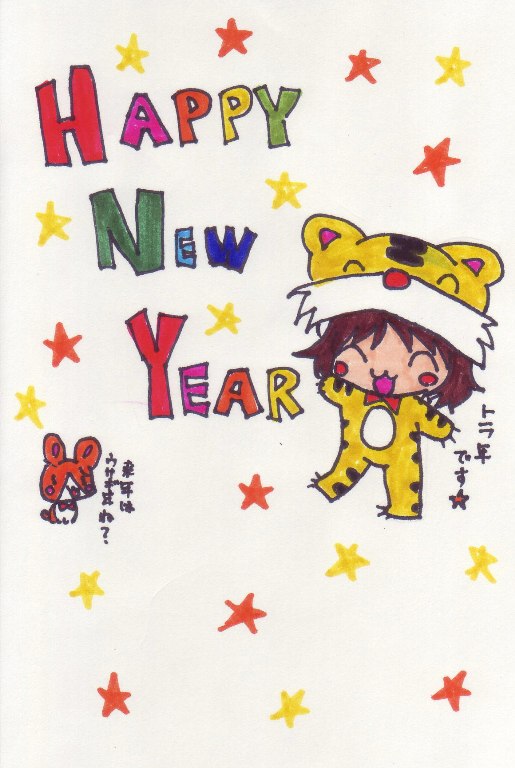 HAPPY
NEW
YEAR
トラ年
です☆
来年は
ウサギだね?